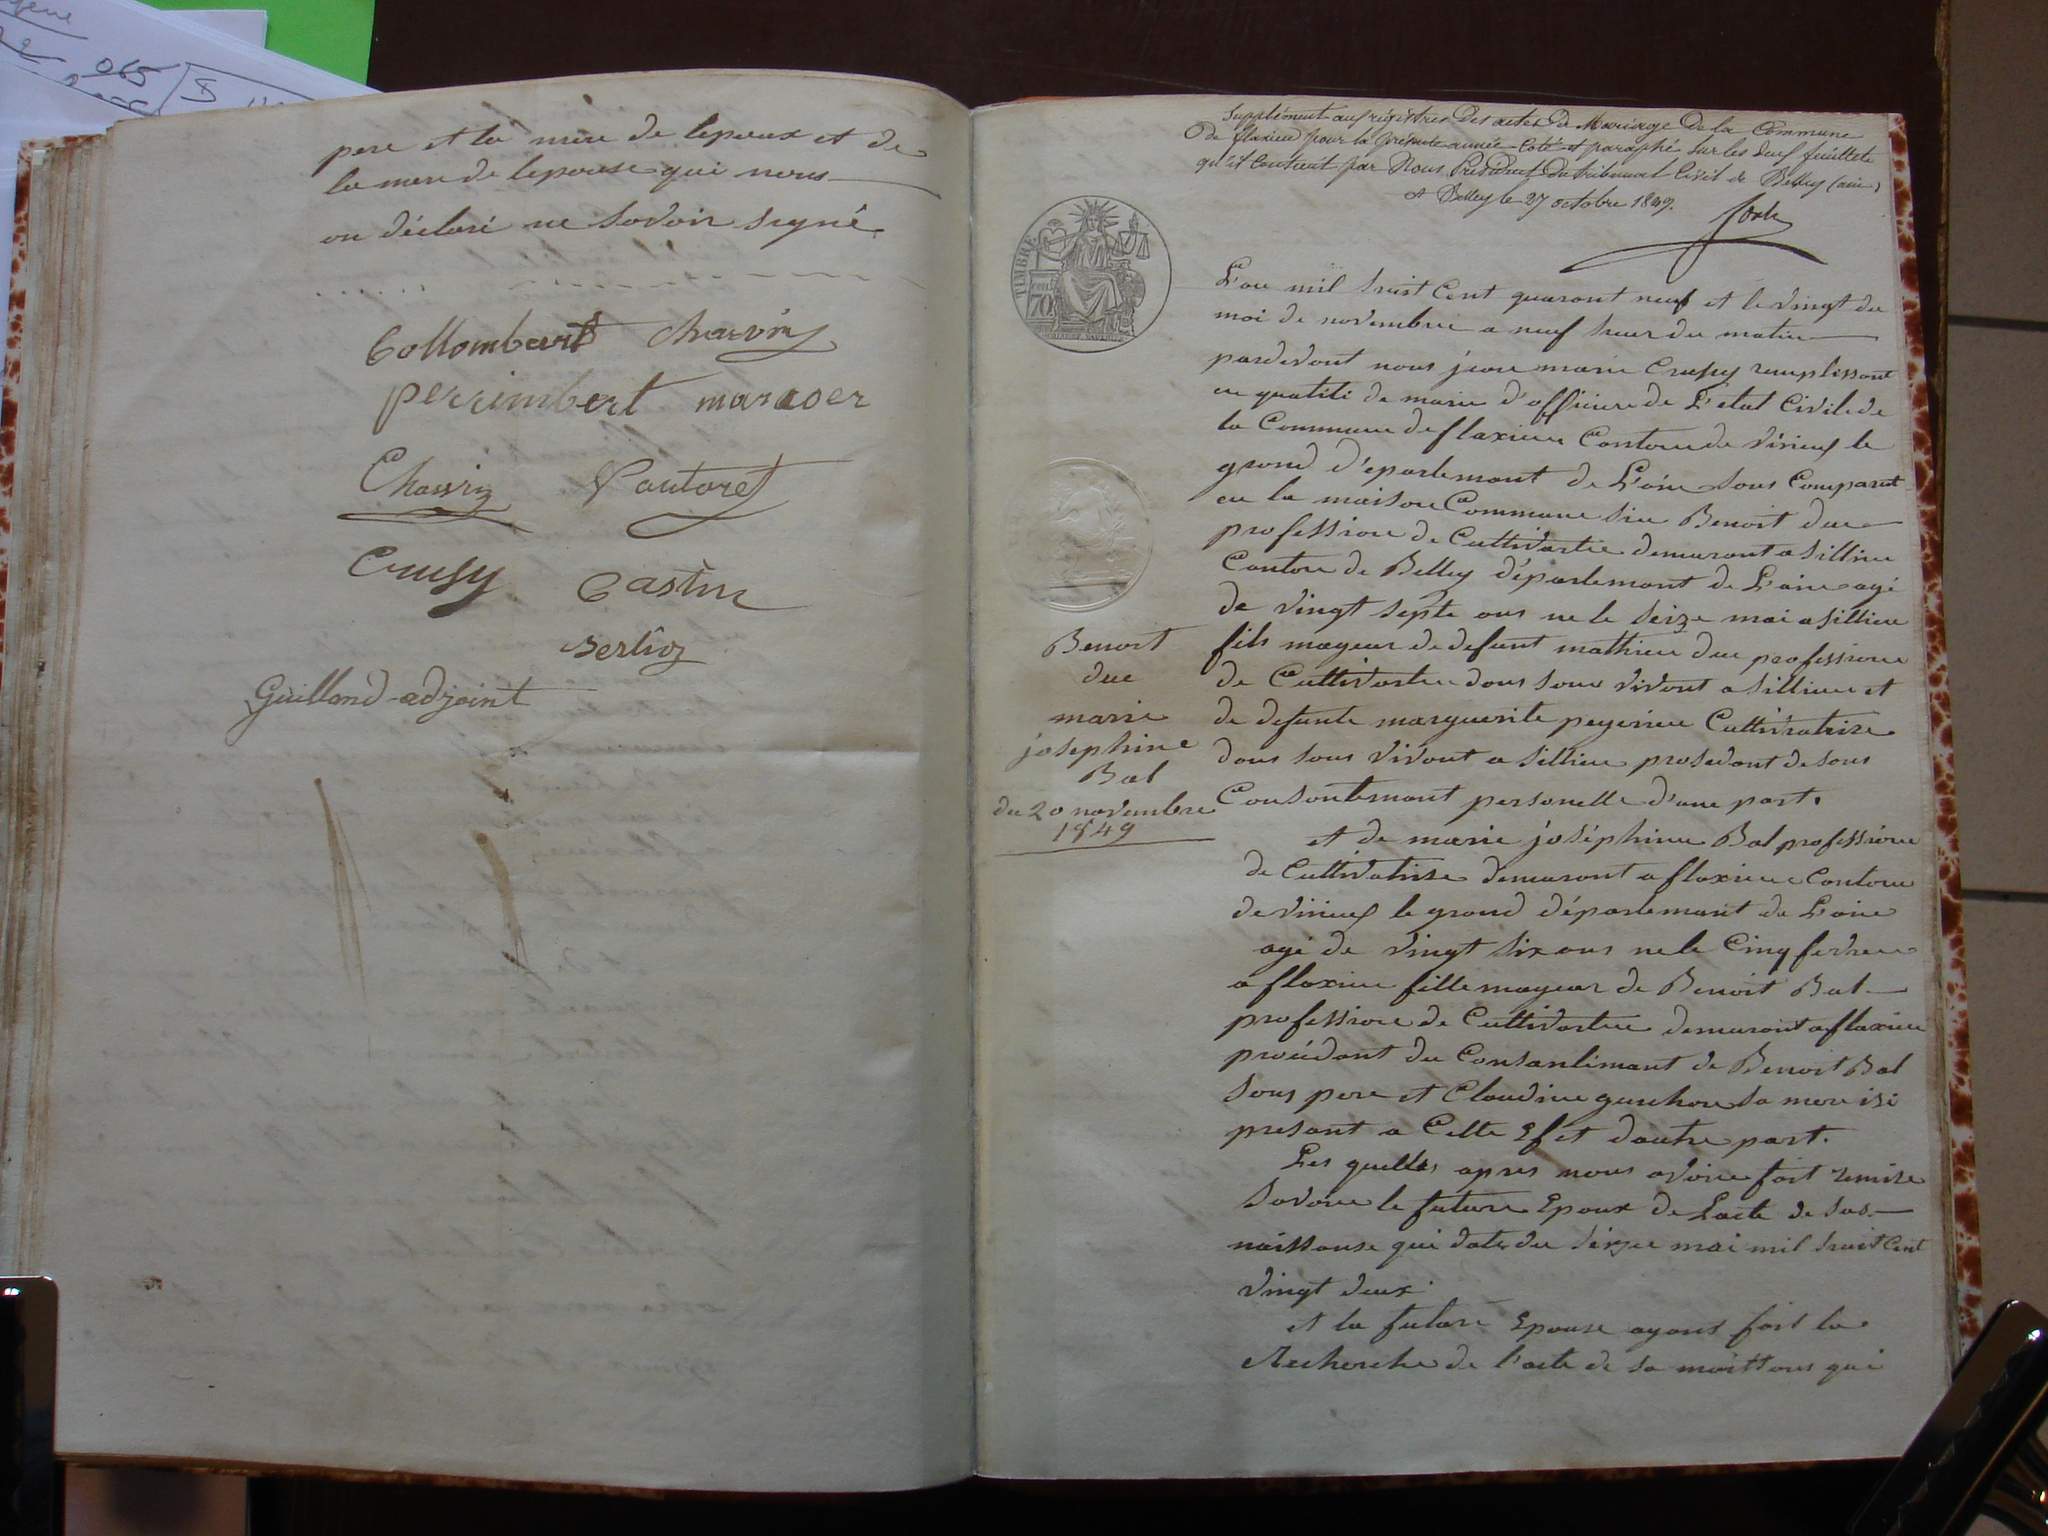 pere et la mere de lepoux et de
la mere de lepouse qui nous
on déclaré ne savoir signé
Collombert charvin
perrimbert
Charvin Pautoret
Crussy Castin
Berlioz
Guilland adjoint
Supplément aux régistres des actes de Mariage de la Commune
de flaxieu pour la présente année Coté et paraphé sur les deux feuillets
qu'il contient par Nous Président du tribunal Civil de Belley (ain)
A Belley le 27 octobre 1849.
TIMBRE
70
L'an mil huit Cent quaront neuf et le vingt du
moi de novembre a neuf heur du matin
pardevant nous jean marie Crussy remplissant
en qualité de maire d'officier de L'état Civil de
la Commune de flaxieu Canton de virieux le
grand d'epartemant de L'ain sons Comparut
en la maison Commune sieur Benoit duc
profession de Cultivateur demurant a sillieu
Canton de Belley département de L'ain agé
de vingt septe ans ne le seize mai a sillieu
fils mageur de defunt mathieu duc profession
de Cultivateur dans sons vivant a sillieu et
de defunte marguerite pegerieu Cultivatrise
dans sons vivant a sillieu prosedant de sons
Consontement personelle d'une part.
et de marie joséphine Bal profession
de Cultivatrise demurant a flaxieu Canton
de virieux le grand département de L'ain
agé de vingt six ans ne le Cinq fevrier
a flaxieu fille mageur de Benoit Bal
profession de Cultivateur demurant a flaxieu
procédant du Consantimant de Benoit Bal
sons pere et Claudine guichon sa mere isi
presant a Cette Efet dautre part.
Les quelles apres nous avoir fait remise
savoir le future Epoux de Lacte de sas
naissanse qui date du seize mai mil huit Cent
vingt deux
et la future Epouse ayans fait la
Recherche de l'acte de sa naissans qui
Benoit
duc
marie
josephine
Bal
du 20 novembre
1849